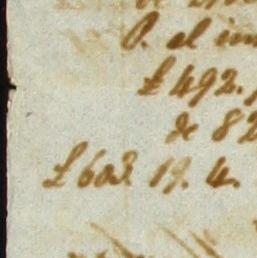 P. el im
£ 492.
de 82
£ 603. 19. 4.